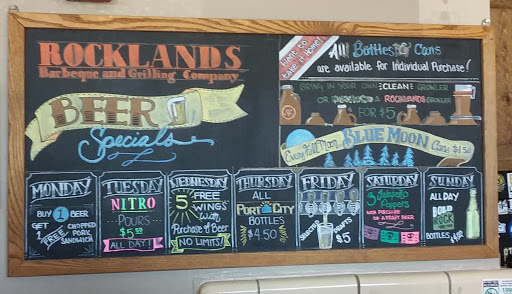 ROCKLANDS
Barbeque and Grilling Company
BEER
Specials
Want to
take it Home?
All Bottles & Cans
are available for Individual Purchase!
BRING IN YOUR OWN CLEAN GROWLER
OR PURCHASE A ROCKLANDS GROWLER
FOR $5
Every Full Moon, BLUE MOON Cans $1.50
MONDAY
BUY 1 BEER
GET 1
FREE CHOPPED
PORK
SANDWICH
TUESDAY
NITRO
POURS
$5.50
ALL DAY!
WEDNESDAY
5 FREE
WINGS
with
Purchase of Beer
NO LIMITS!
THURSDAY
ALL
PORT CITY
BOTTLES
$4.50
FRIDAY
SELECTED DRAFTS
$5
SATURDAY
3 Jalapeño
Poppers
WITH PURCHASE
OF A DRAFT BEER
SUNDAY
ALL DAY
BOLD
ROCK
BOTTLES $4.50